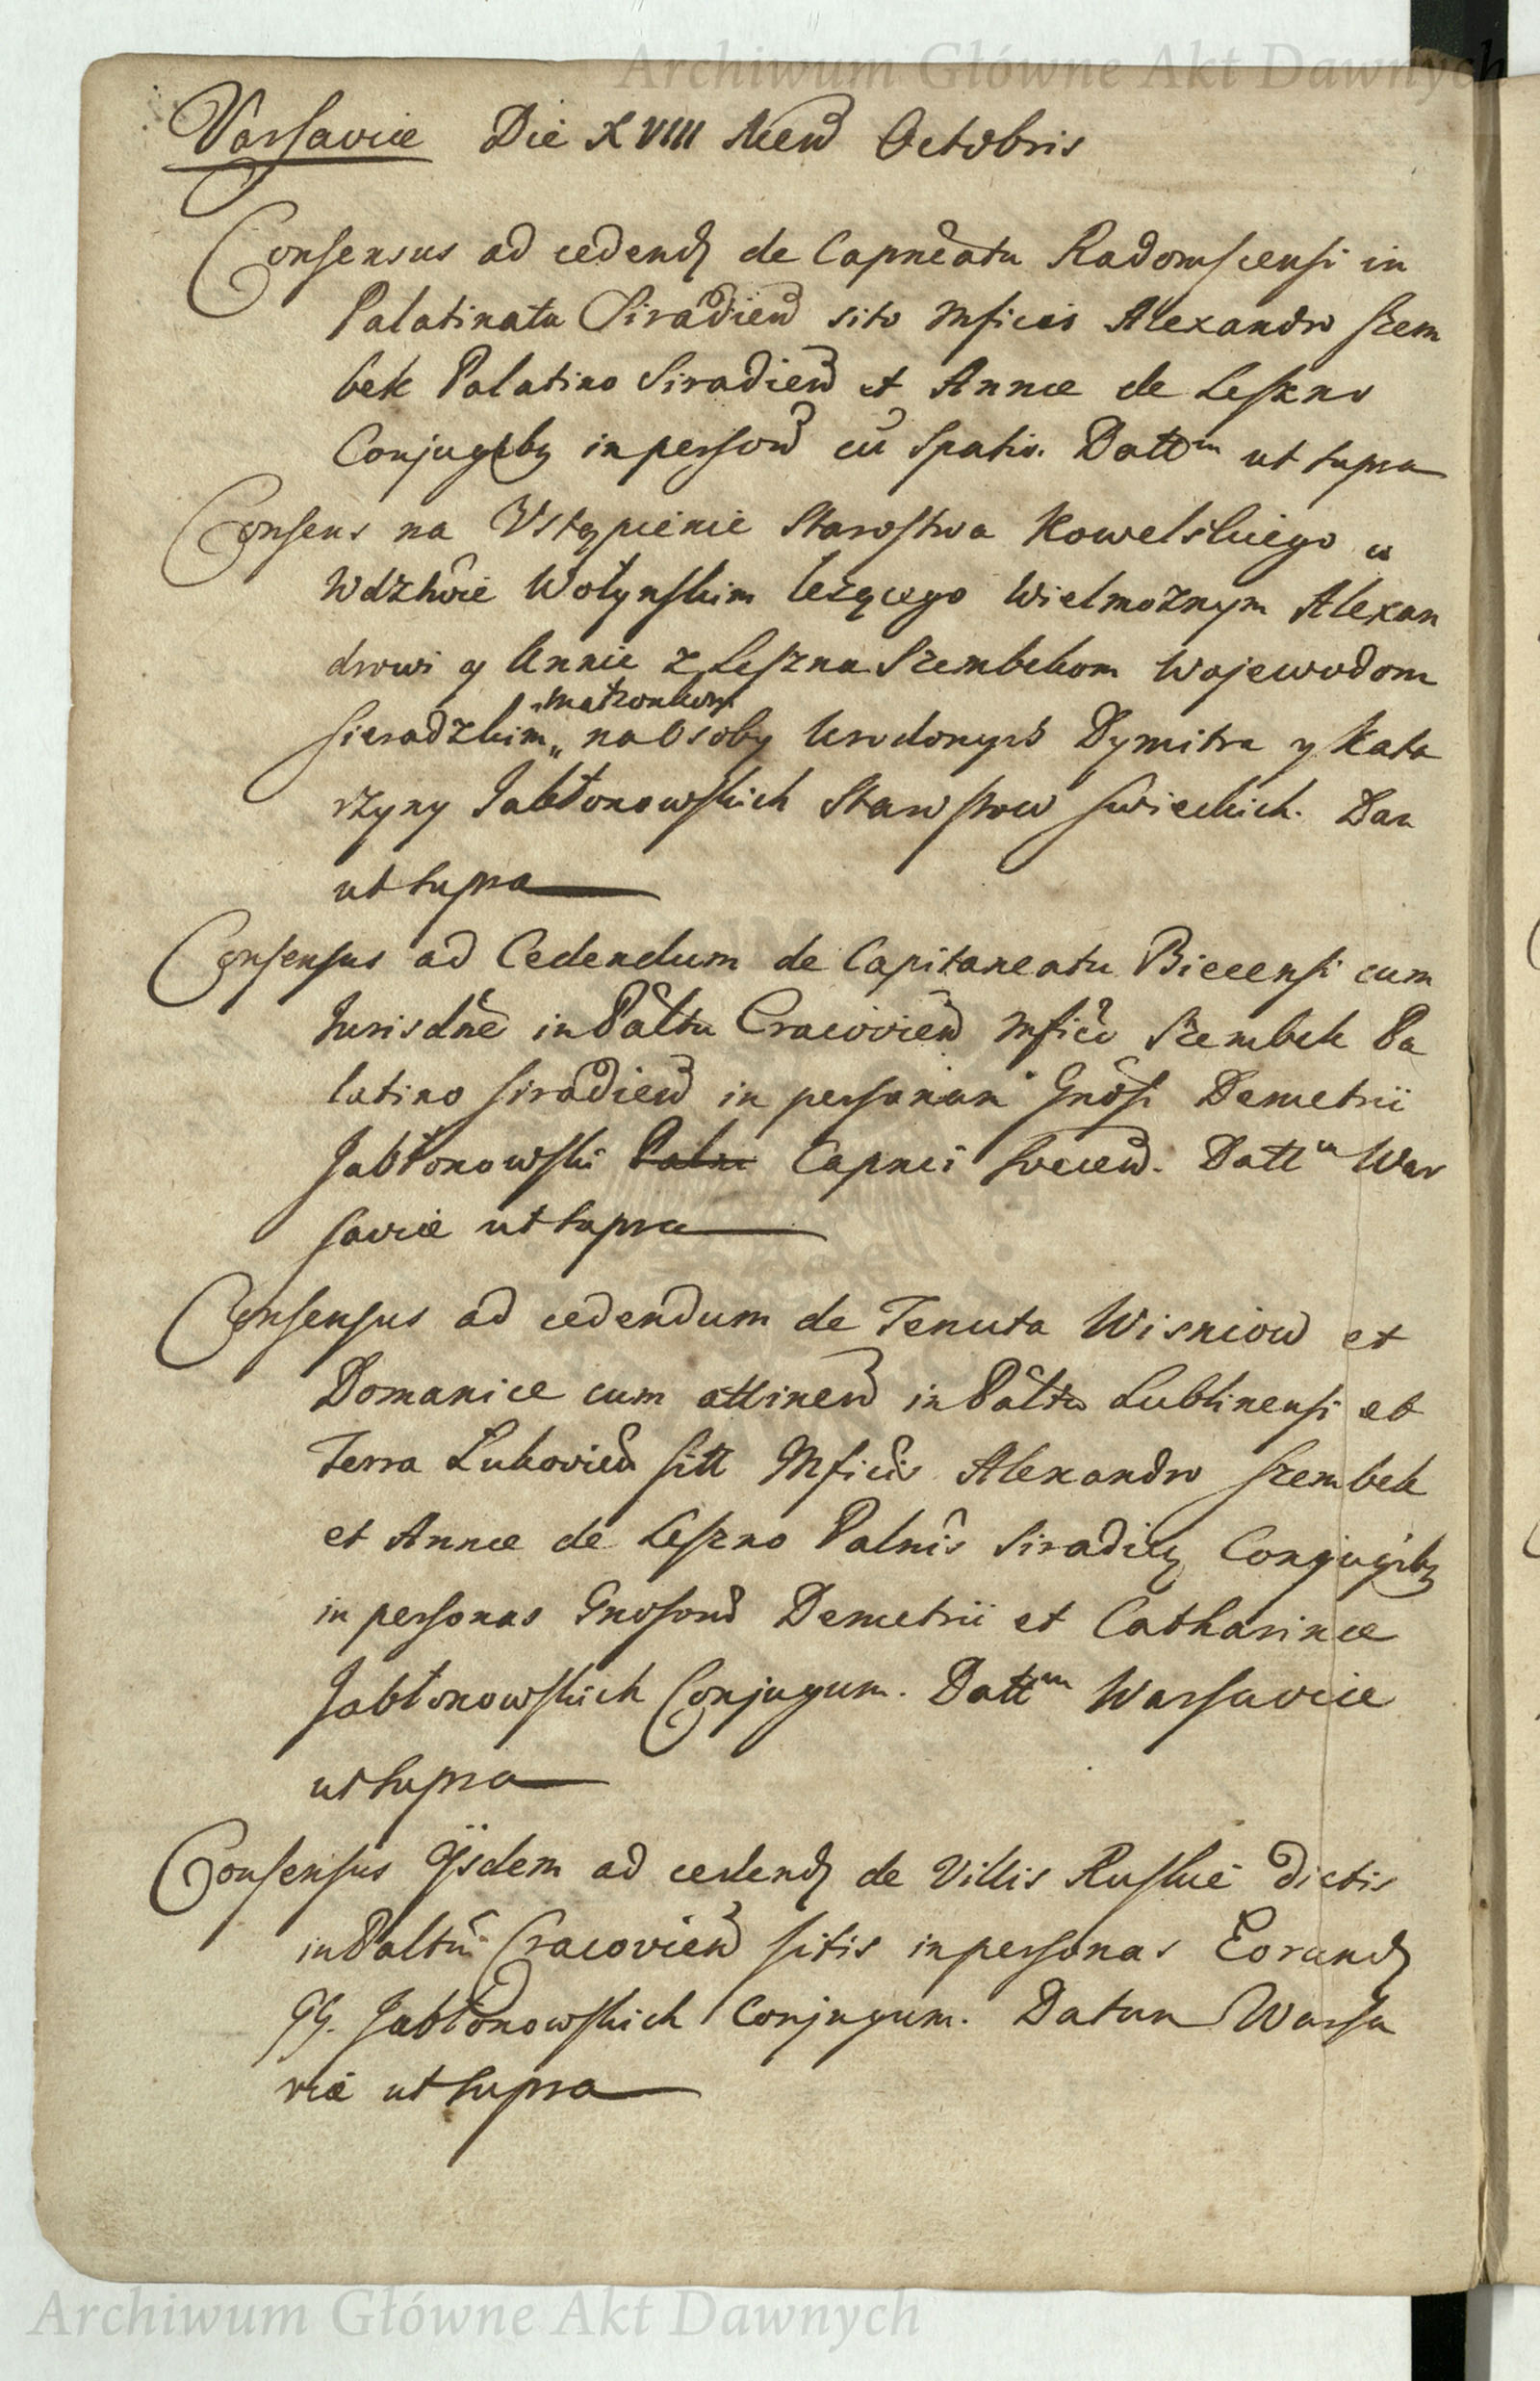 Archiwum Główne Akt Dawnych
Varsaviæ Die XVIII Mens Octobris
Consensus ad cedend de Capneatu Radomscensi in
Palatinatu Siradien sito Mficis Alexandro Szem
bek Palatino Siradien et Annæ de Leszno
Conjugibq in person cu Spatio. Dattm ut supra
Consens na Vstąpienie Starostwa Kowelskiego w
Wdztwie Wołynskim lezącego Wielmoznym Alexan
drowi y Annie z Leszna Szembekom Wojewodom
małzonkom
Sieradzkim „ na Osoby Urodonych Dymitra y Kata
rzyny Jabłonowskich Starostow Swieckich. Dan
ut supra
Consensus ad Cedendum de Capitaneatu Biecensi cum
Jurisdne in Paltu Cracovien Mfico Szembek Pa
latino Siradien in personam Gnosi Demetrii
Jabłonowski Palni Capnei Svecen. Dattm War
saviæ ut supra
Consensus ad cedendum de Tenuta Wisniow et
Domanice cum attinen in Paltu Lublinensi et
Terra Lukovien sitt Mficis Alexandro Szembek
et Annæ de Leszno Palnis Siradien Conjugibq
in personas Gnosorum Demetrii et Catharinæ
Jabłonowskich Conjugum. Dattm Warsaviæ
ut supra
Consensus Ijsdem ad cedend de Villis Ruskie dictis
in Paltu Cracovien sitis in personas Eorund
GG. Jabłonowskich Conjugum. Datum Warsa
viæ ut supra
Archiwum Główne Akt Dawnych